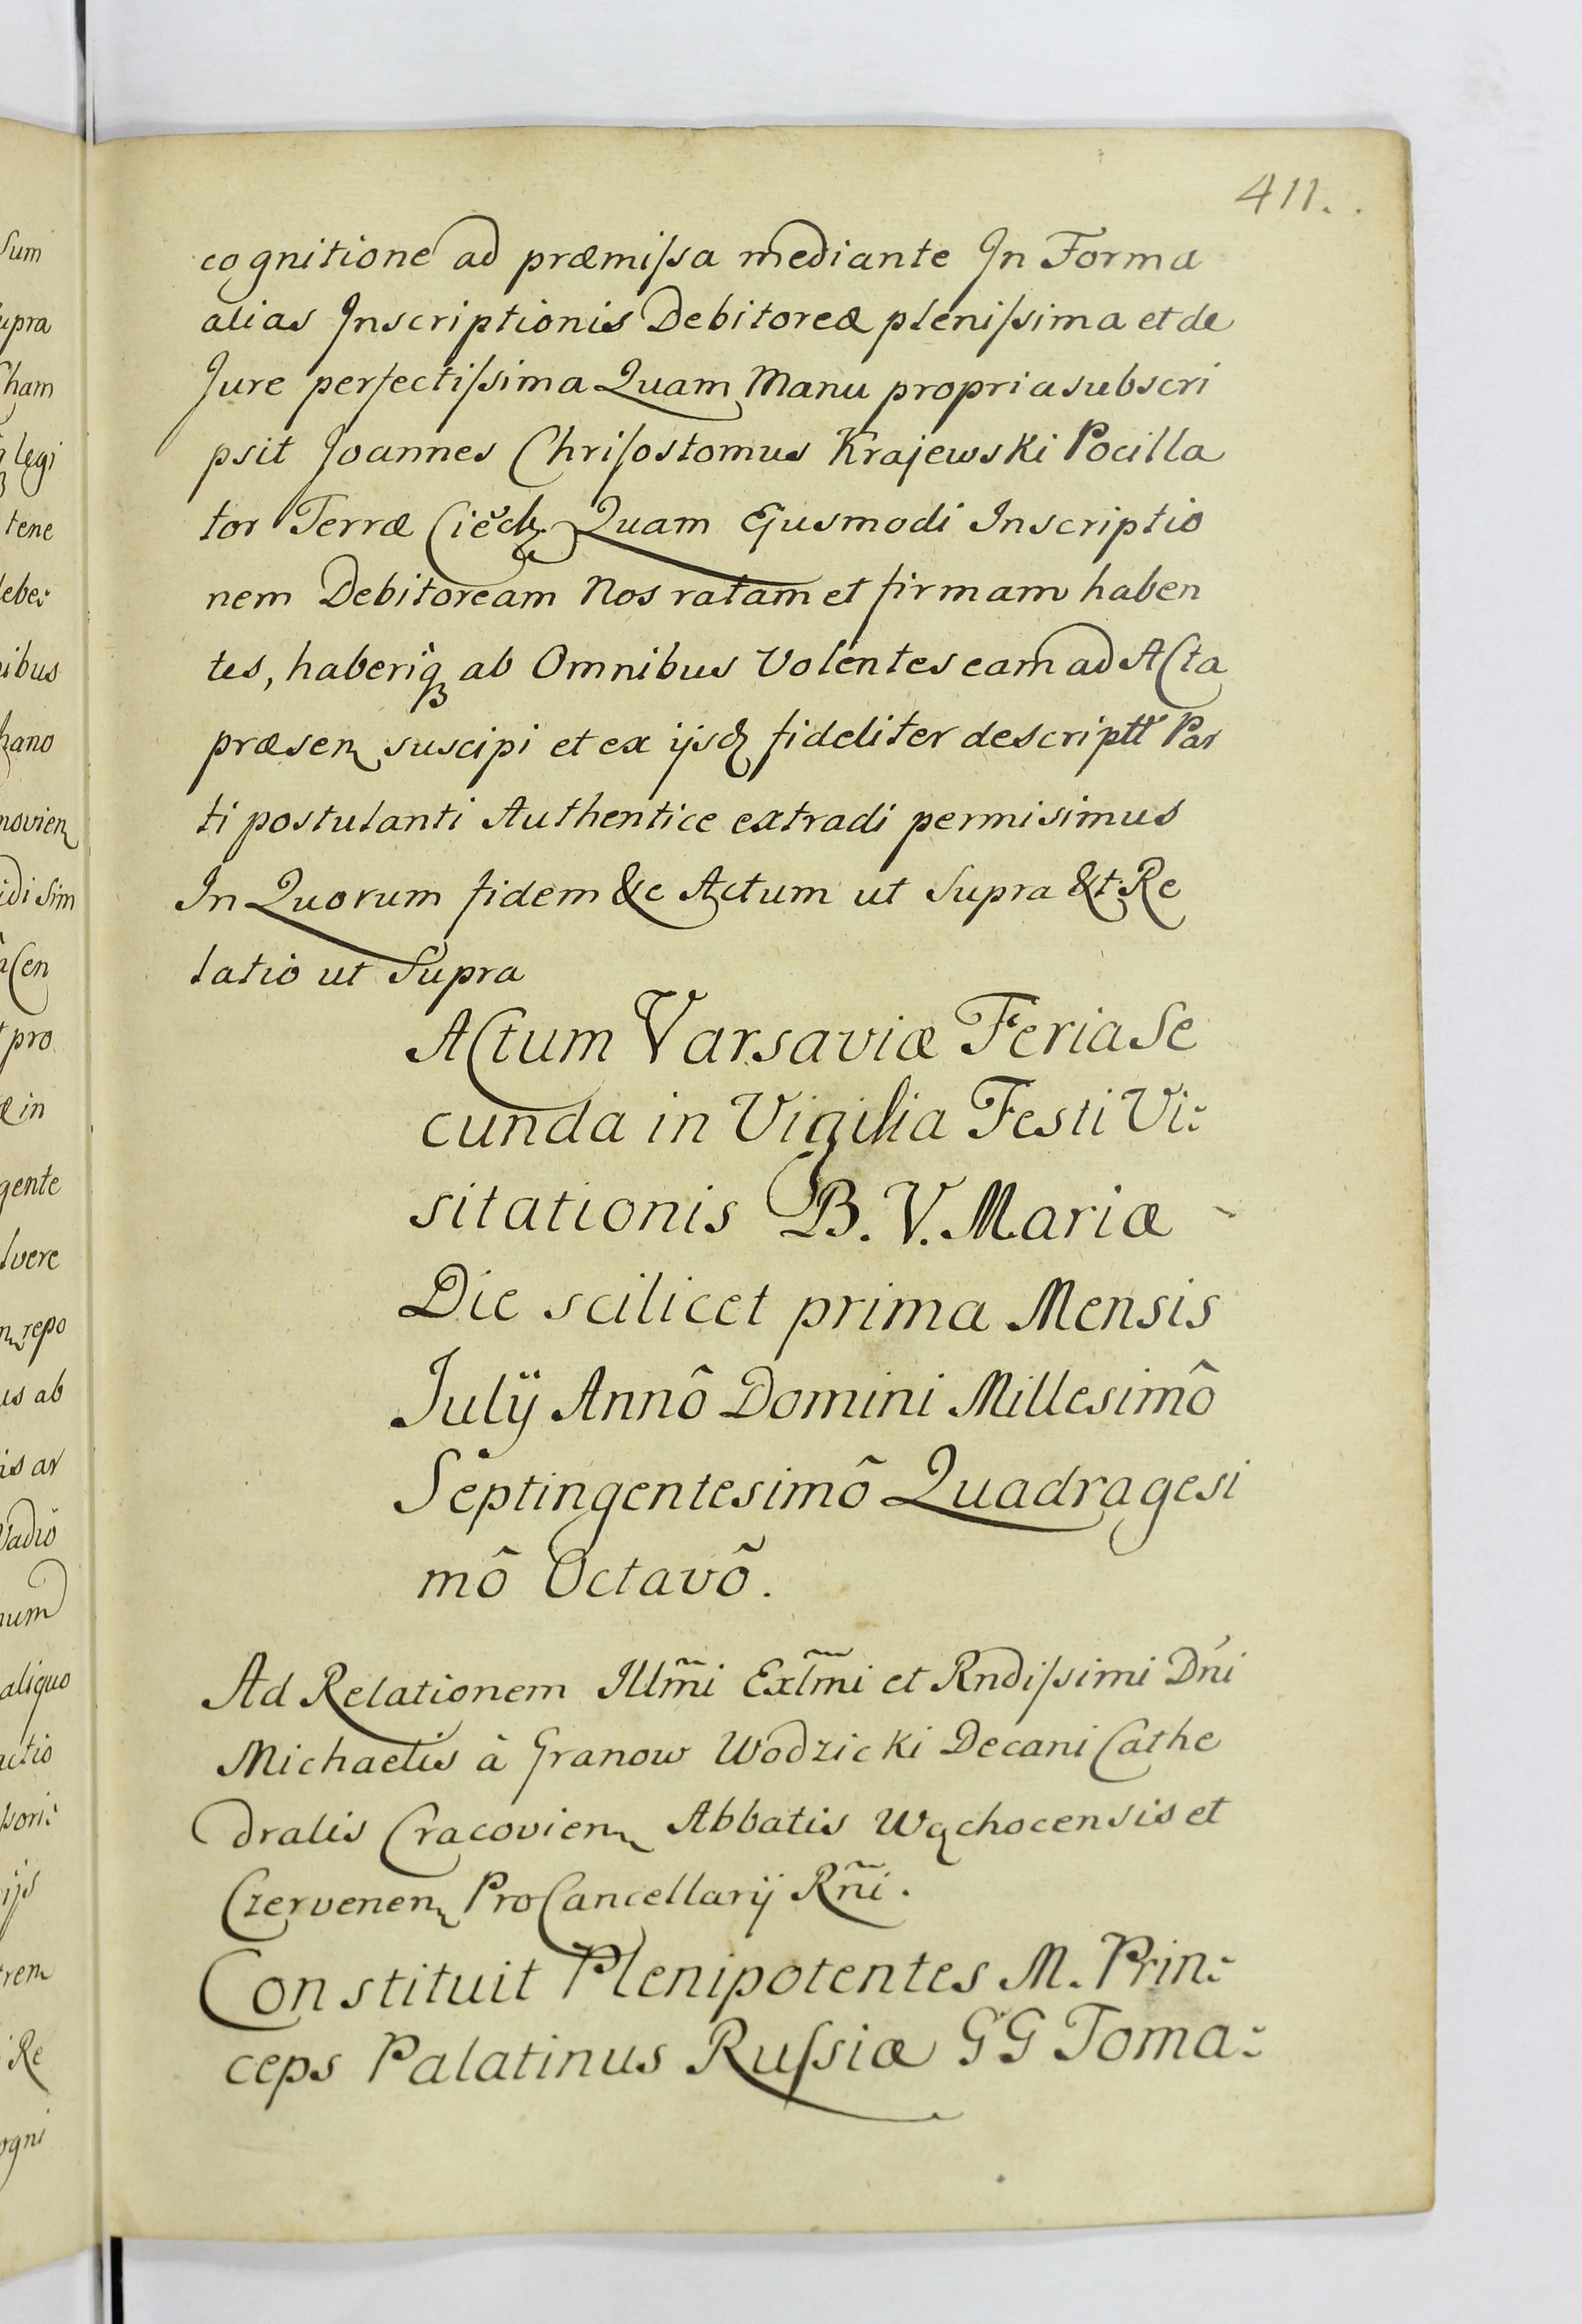 411.
cognitione ad præmiſsa mediante In Forma
alias Inscriptionis Debitoreæ pleniſsima et de
Jure perfectiſsima Quam Manu propria subscri
psit Joannes Chriſostomus Krajewski Pocilla
tor Terræ Quam Ejusmodi Inscriptio
nem Debitoream Nos ratam et firmam haben
tes, haberiqꝫ ab Omnibus Volentes eam ad Acta
præsen suscipi et ex ijsd fideliter descriptt Par
ti postulanti Authentice extradi permisimus
In Quorum fidem &c Actum ut Supra &t Re
latio ut Supra
Actum Varsaviæ Feria Se
cunda in Vigilia Festi Vi:
sitationis B. V. Mariæ -
Die scilicet prima Mensis
Julÿ Annô Domini Millesimô
Septingentesimô Quadragesi
mô Octavô.
Ad Relationem Illm̃i Exlm̃i et Rndiſsimi Dńi
Michaelis à Granow Wodzicki Decani Cathe
dralis Cracovien Abbatis Wąchocensis et
Czervenen ProCancellarÿ Rñi.
Constituit Plenipotentes M. Prin:
ceps Palatinus Ruſsiæ GG Toma:
sum
supra
legi
tene
debe:
nibus
movien
idi Sim
pro
æ in
gente
lvere
repo
us ab
is ar
Vadiô
num
aliquo
actio
sori:
rem
Re
ogni